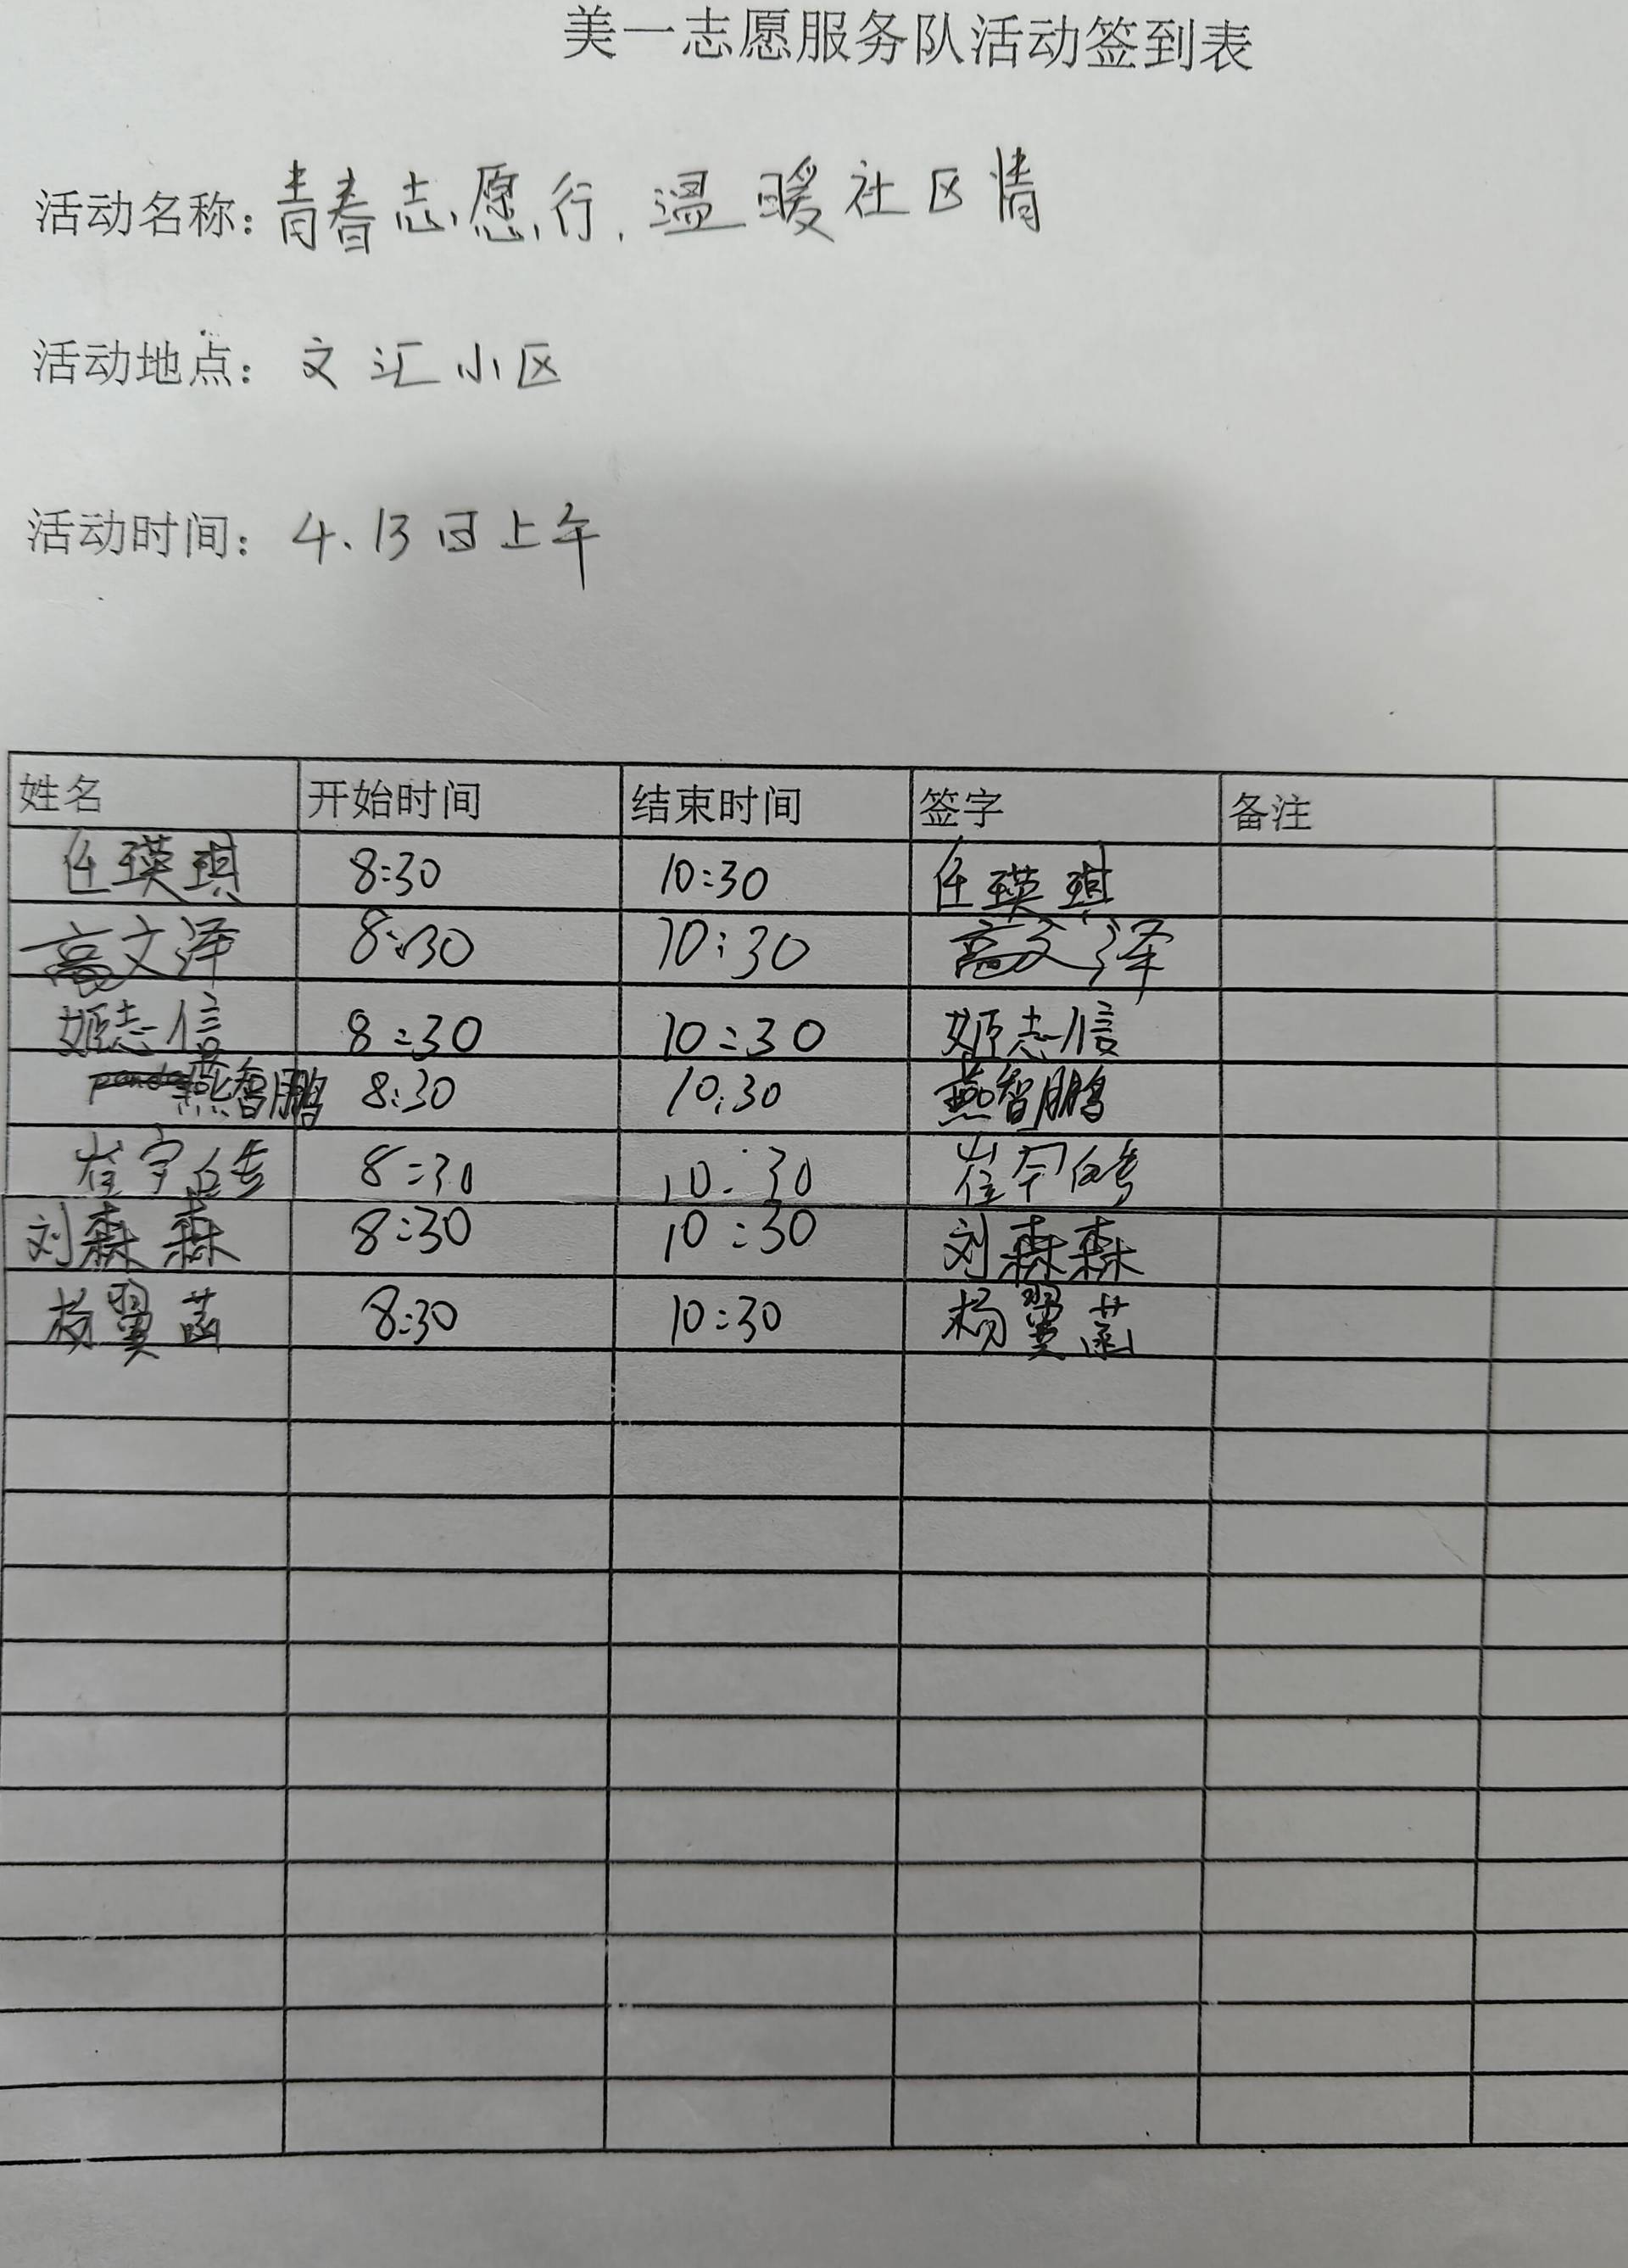 美一志愿服务队活动签到表
活动名称: 青春志愿行, 温暖社区情
活动地点: 文汇小区
活动时间: 4.13日上午
姓名 开始时间 结束时间 签字 备注
任瑛琪 8:30 10:30 任瑛琪
高文泽 8:30 10:30 高文泽
姬志信 8:30 10:30 姬志信
燕智鹏 8:30 10:30 燕智鹏
崔宇皓 8:30 10:30 崔宇皓
刘森森 8:30 10:30 刘森森
杨翼菡 8:30 10:30 杨翼菡